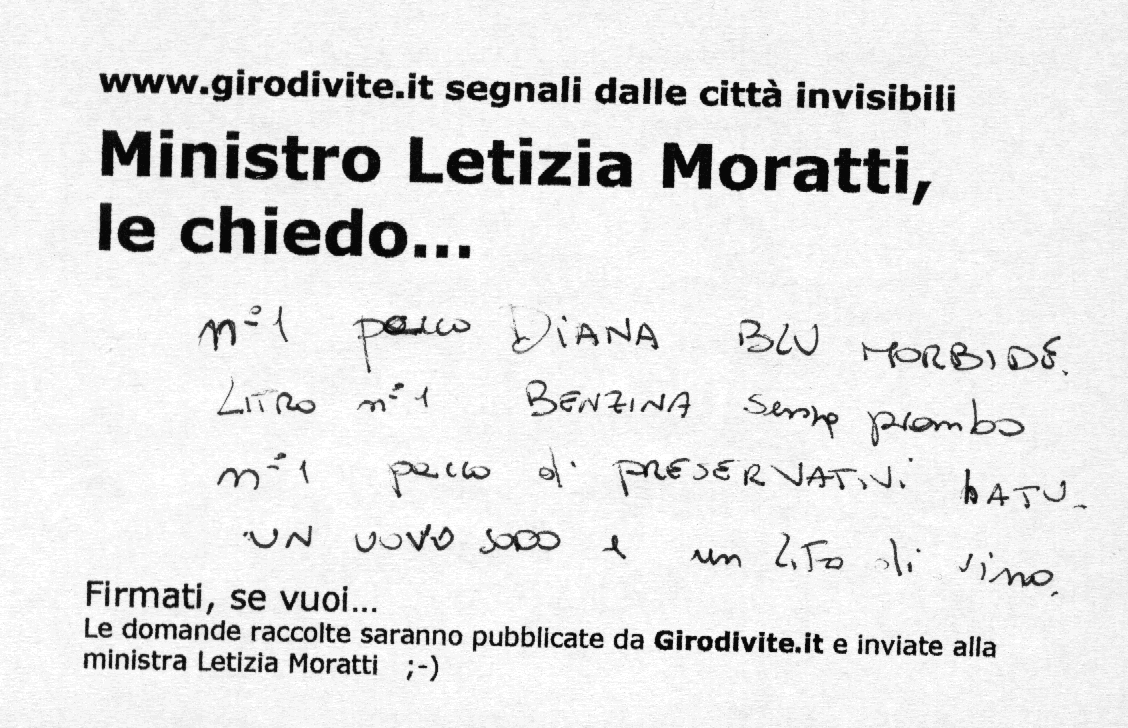 www.girodivite.it segnali dalle città invisibili
Ministro Letizia Moratti,
le chiedo...
n° 1 pacco DIANA BLU MORBIDE.
LITRO n° 1 BENZINA senza piombo
n° 1 pacco di PRESERVATIVI hATU.
UN UOVO SODO e un LiTo di vino.
Firmati, se vuoi...
Le domande raccolte saranno pubblicate da Girodivite.it e inviate alla
ministra Letizia Moratti ;-)